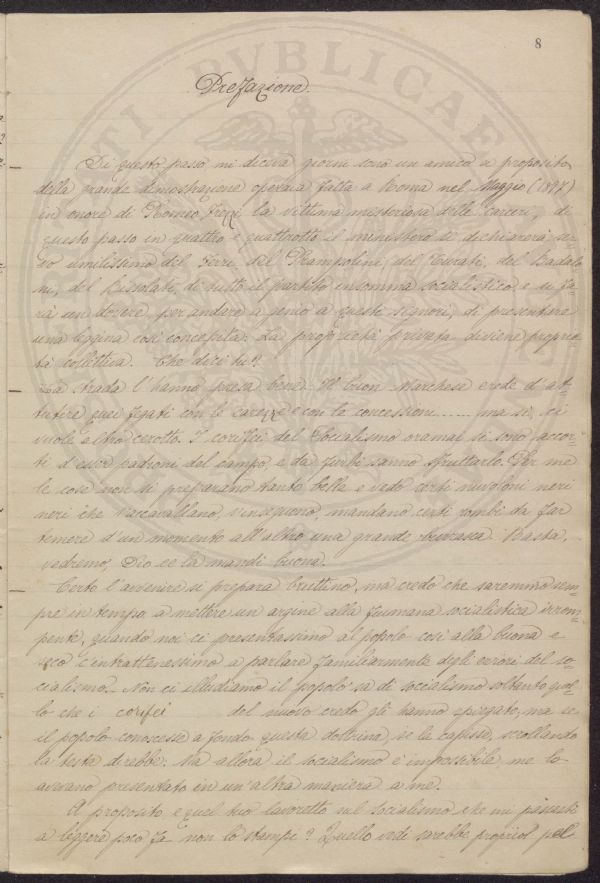 8
Prefazione.
Di questo passo mi diceva giorni sono un amico a proposito
della grande dimostrazione operaia fatta a Roma nel Maggio (1897)
in onore di Romeo Frezzi la vittima misteriosa delle carceri, di
questo passo in quattro e quattrotto il ministero si dichiarerà ser-
vo umilissimo del Ferri del Prampolini, del Turati, del Badalo
ni, del Bissolati, di tutto il partito insomma socialistico e si fa-
rà un dovere per andare a genio a questi signori, di presentare
una leggina così concepita: La proprietà privata diviene proprie
tà collettiva. Che dici tu?!
La strada l'hanno presa bene. Il buon Marchese crede d'at-
tutire quei fegati con le carezze e con le concessioni...... ma sì, ci
vuole altro cerotto. I corifei del Socialismo oramai si sono accor-
ti d'essere padroni del campo, e da furbi sanno sfruttarlo. Per me
le cose non si preparano tanto belle e vedo certi nuvoloni neri
neri che s'accavallano, s'inseguono, mandano certi rombi da far
temere d'un momento all'altro una grande burrasca. Basta,
vedremo; Dio ce la mandi buona.
Certo l'avvenire si prepara bruttino, ma credo che saremmo sem-
pre in tempo a mettere un argine alla fiumana socialistica irrom-
pente, quando noi ci presentassimo al popolo così alla buona e
c'entrattenessimo a parlare famigliarmente degli errori del so-
cialismo. Non ci illudiamo il popolo sa di socialismo soltanto quel-
lo che i corifei del nuovo credo gli hanno spiegato; ma se
il popolo conoscesse a fondo questa dottrina, se la capisse, scrollando
la testa direbbe: Ma allora il socialismo è impossibile, me lo
avevano presentato in un'altra maniera a me.
A proposito e quel tuo lavoretto sul socialismo che mi
a leggere poco fa non lo stampi? Quello vedi sarebbe proprio pel